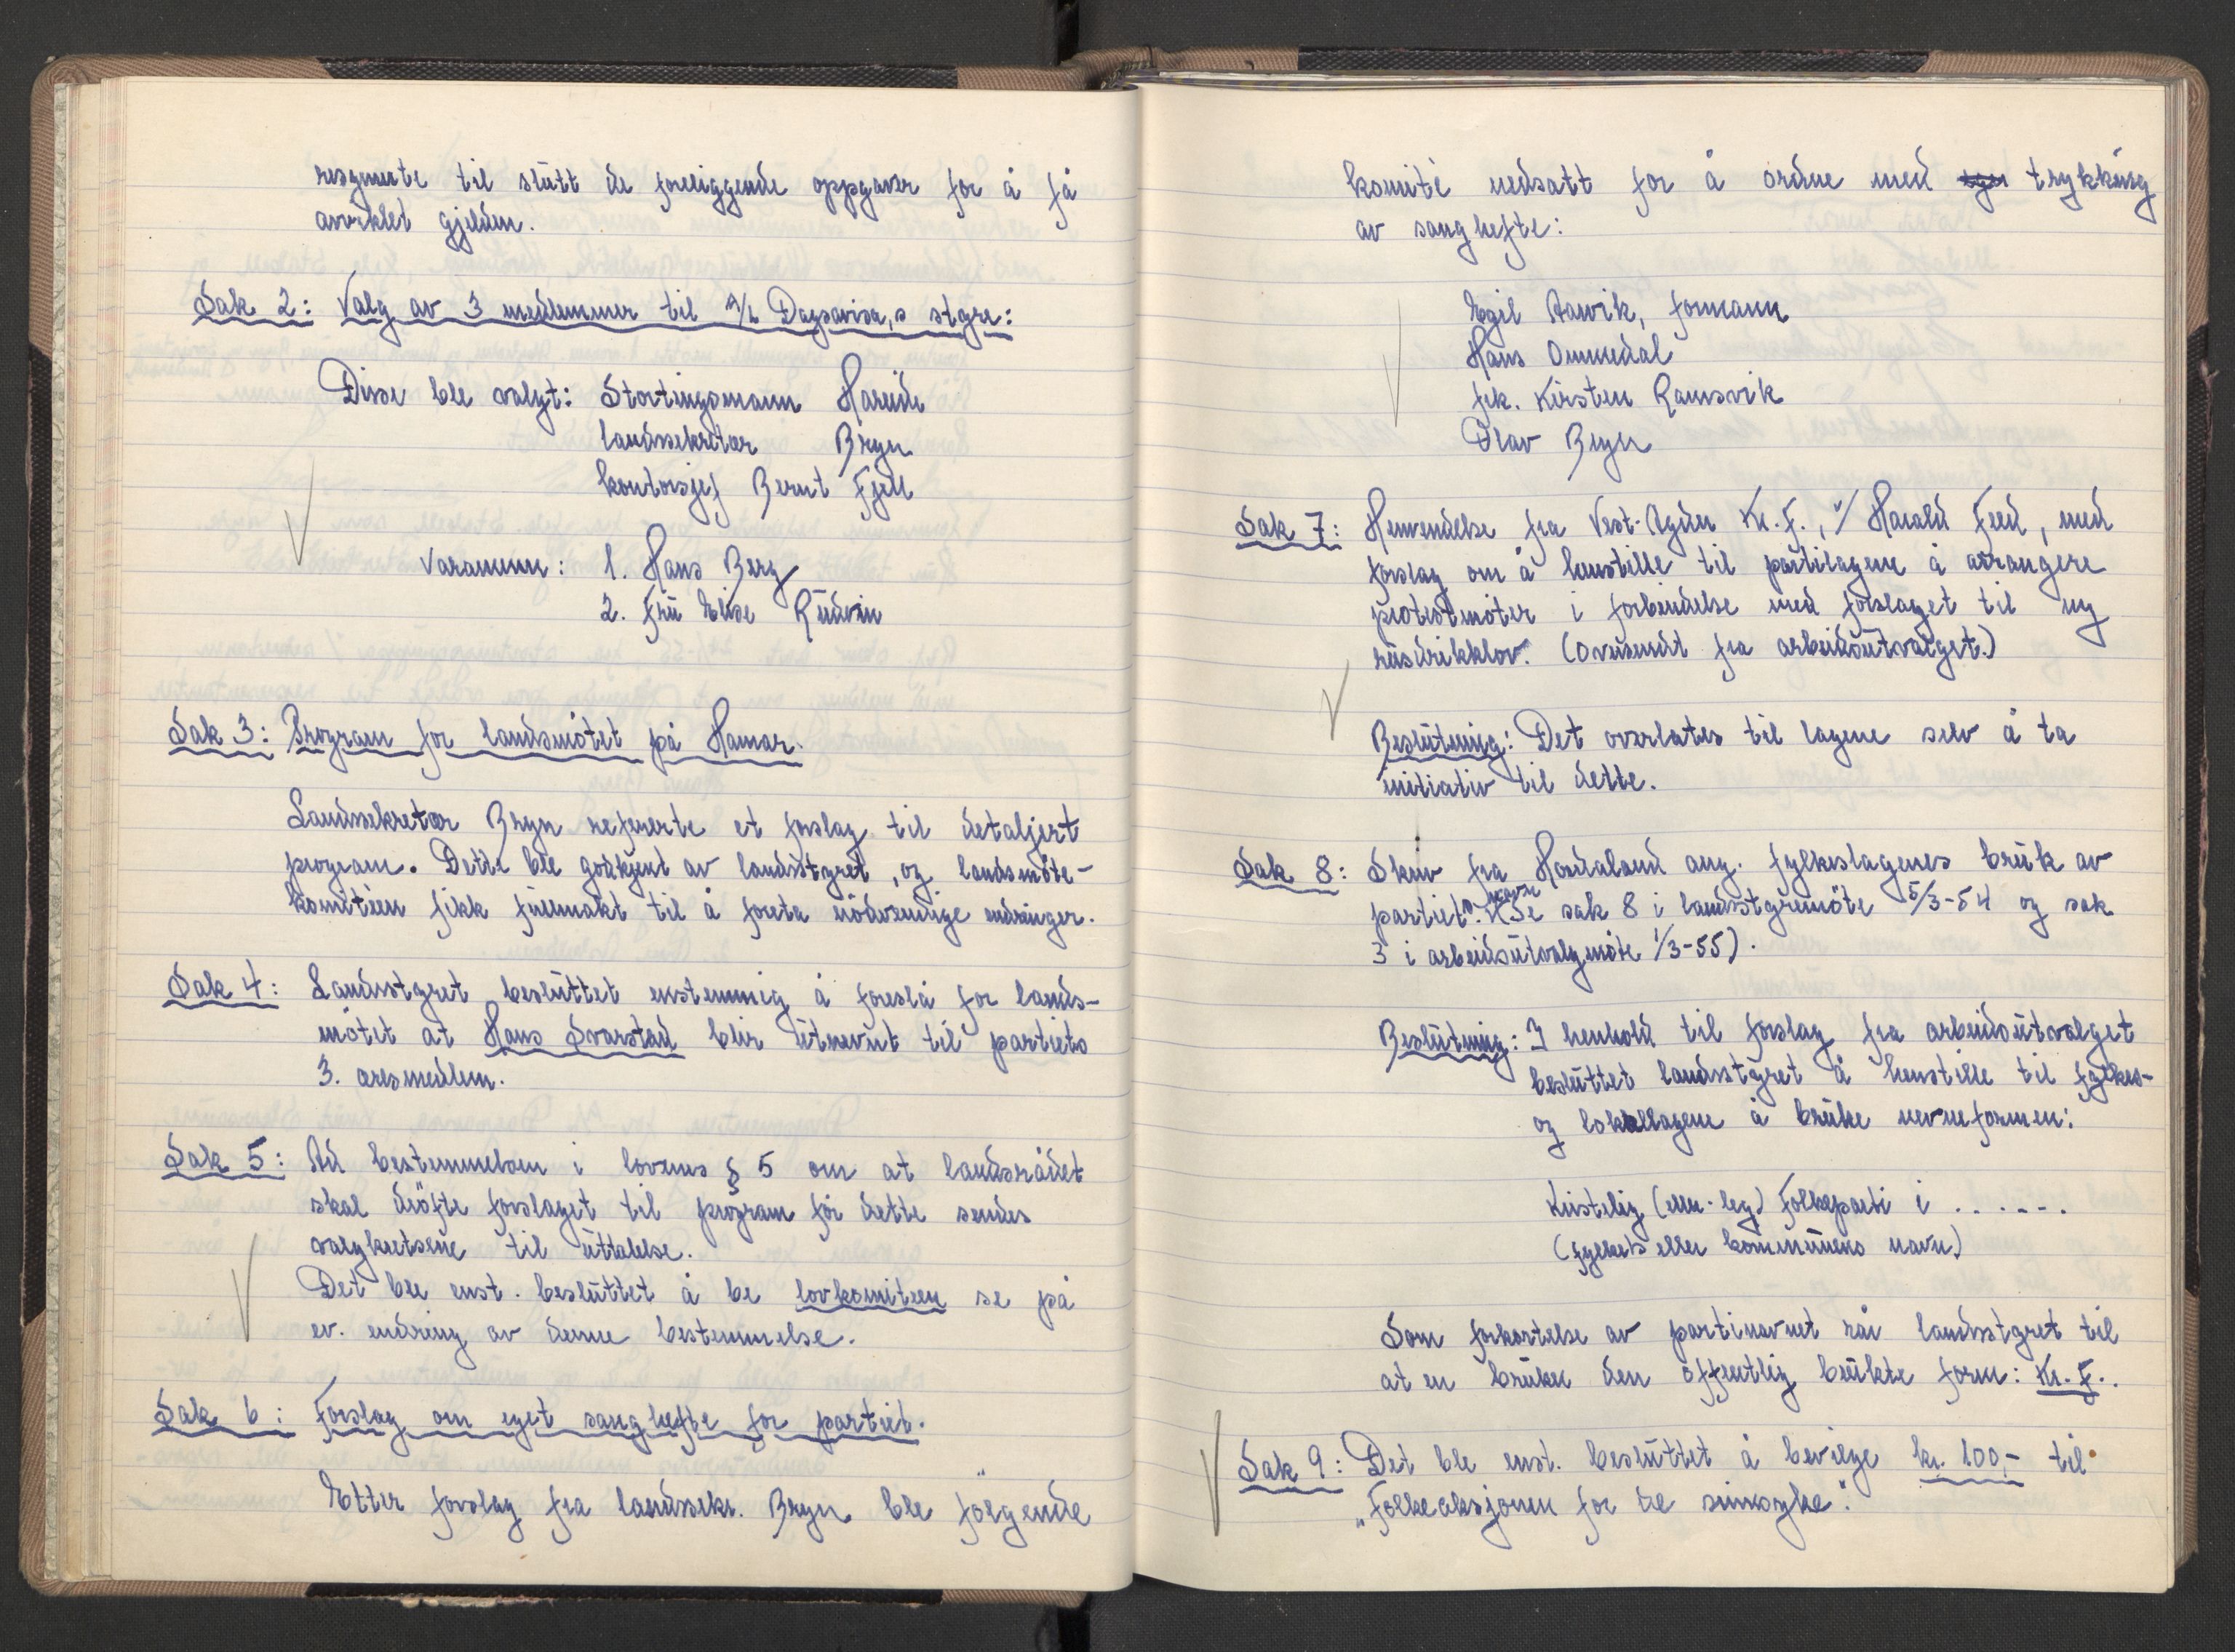 resymerte til slutt de foreliggende oppgaver for å få
avviklet gjelden.
Sak 2: Valg av 3 medlemmer til A/L Dagsavisa,s styre:
Disse ble valgt: Stortingsmann Hareide
landssekretær Bryn
kontorsjef Bernt Fjell
Varamenn: 1. Hans Berg
2. Fru Elise Rudvin
Sak 3: Program for landsmötet på Hamar.
Landssekretær Bryn refererte et forslag til detaljert
program. Dette ble godkjent av landsstyret, og landsmöte-
komitéen fikk fullmakt til å foreta nödvendige endringer.
Sak 4: Landsstyret besluttet enstemmig å foreslå for lands-
mötet at Hans Svarstad blir utnevnt til partiets
3. æresmedlem.
Sak 5: Ad bestemmelsen i lovenes § 5 om at landsrådet
skal dröfte forslaget til program för dette sendes
valgkretsene til uttalelse.
Det ble enst. besluttet å be lovkomiteen se på
ev. endring av denne bestemmelse.
Sak 6: Forslag om eget sanghefte for partiet.
Etter forslag fra landssekr. Bryn ble fölgende
komité nedsatt for å ordne med trykking
av sanghefte:
Egil Aarvik, formann
Hans Ommedal
frk. Kirsten Ramsvik
Olav Bryn
Sak 7: Henvendelse fra Vest-Agder Kr. F., v/ Harald Feed, med
forslag om å henstille til partilagene å arrangere
protestmöter i forbindelse med forslaget til ny
rusdrikklov. (Oversendt fra arbeidsutvalget.)
Beslutning: Det overlates til lagene selv å ta
initiativ til dette.
Sak 8: Skriv fra Hordaland ang. fylkeslagenes bruk av
partiets navn. (Se sak 8 i landsstyremöte 5/3-54 og sak
3 i arbeidsutvalgsmöte 1/3-55).
Beslutning: I henhold til forslag fra arbeidsutvalget
besluttet landsstyret å henstille til fylkes-
og lokallagene å bruke navneformen:
Kristelig (ell. -leg) Folkeparti i . . . . . .
(fylkets eller kommunens navn)
Som forkortelse av partinavnet rår landsstyret til
at en bruker den offentlig brukte form: Kr. F..
Sak 9: Det ble enst. besluttet å bevilge kr. 100,- til
"Folkeaksjonen for de sinnsyke".